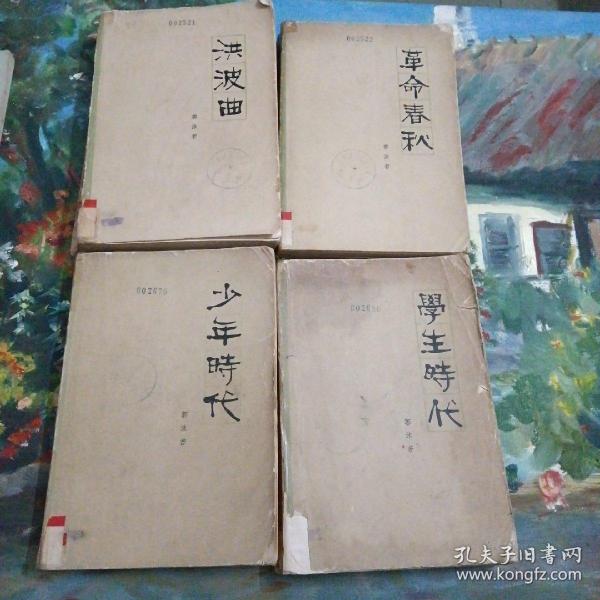 002521
洪波曲
郭沫若
002522
革命春秋
郭沫若
002676
少年時代
郭沫若
學生時代
郭沫若
孔夫子旧书网
www.kongfz.com